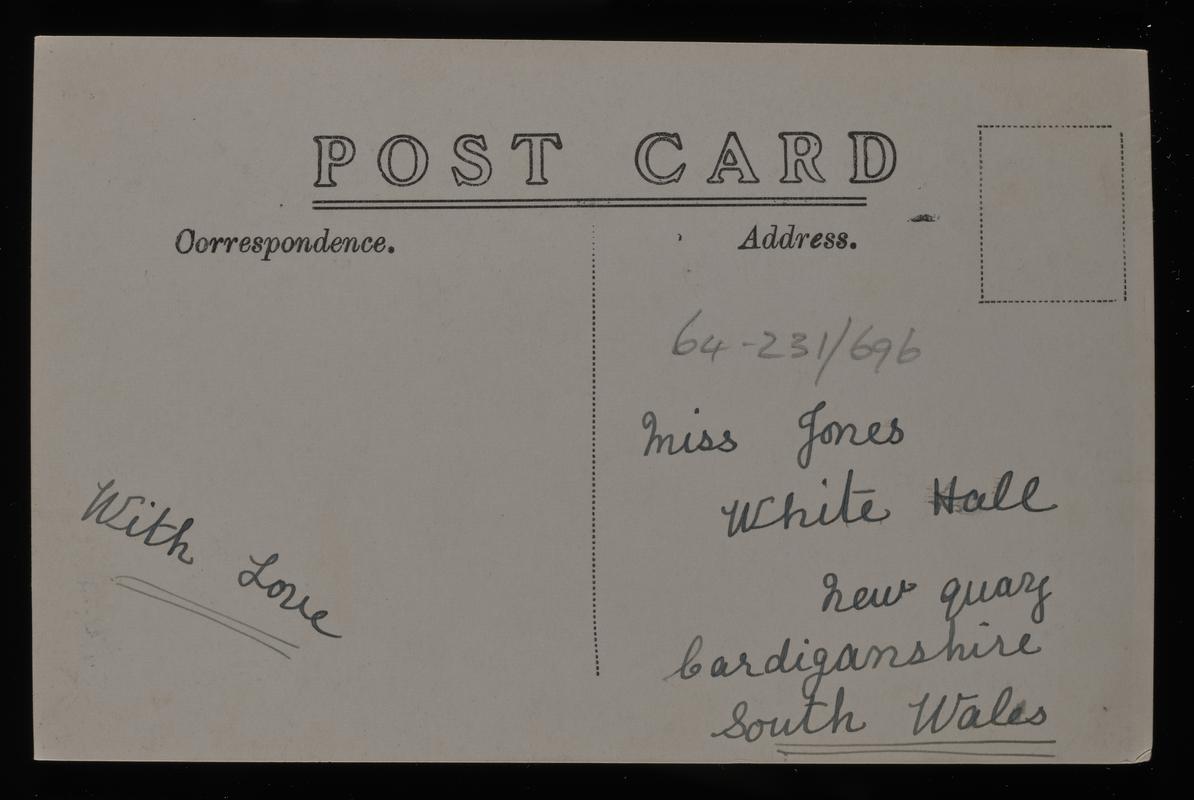 POST CARD
Correspondence.
Address.
64-231/696
Miss Jones
White Hall
New quay
Cardiganshire
South Wales
With Love